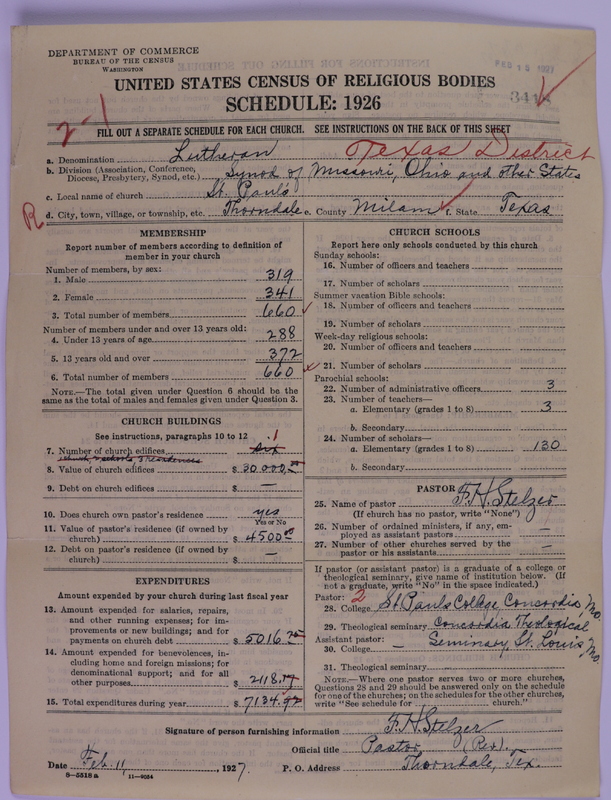 DEPARTMENT OF COMMERCE
BUREAU OF THE CENSUS
WASHINGTON
FEB 15 1927
UNITED STATES CENSUS OF RELIGIOUS BODIES
SCHEDULE: 1926
2-1
FILL OUT A SEPARATE SCHEDULE FOR EACH CHURCH. SEE INSTRUCTIONS ON THE BACK OF THIS SHEET
a. Denomination Lutheran Texas District
b. Division (Association, Conference, Diocese, Presbytery, Synod, etc.) Synod of Missouri, Ohio and other States
c. Local name of church St. Paul's
R d. City, town, village, or township, etc. Thorndale e. County Milam f. State Texas
MEMBERSHIP
Report number of members according to definition of
member in your church
Number of members, by sex:
1. Male 319
2. Female 341
3. Total number of members 660
Number of members under and over 13 years old:
4. Under 13 years of age 288
5. 13 years old and over 372
6. Total number of members 660
NOTE.—The total given under Question 6 should be the
same as the total of males and females given under Question 3.
CHURCH BUILDINGS
See instructions, paragraphs 10 to 12
7. Number of church edifices six 1
8. Value of church edifices $ 30,000
9. Debt on church edifices $ —
10. Does church own pastor's residence yes
Yes or No
11. Value of pastor's residence (if owned by
church) $ 4500
12. Debt on pastor's residence (if owned by
church) $ —
EXPENDITURES
Amount expended by your church during last fiscal year
13. Amount expended for salaries, repairs,
and other running expenses; for im-
provements or new buildings; and for
payments on church debt $ 5016
14. Amount expended for benevolences, in-
cluding home and foreign missions; for
denominational support; and for all
other purposes $ 2118
15. Total expenditures during year $ 7134
CHURCH SCHOOLS
Report here only schools conducted by this church
Sunday schools:
16. Number of officers and teachers
17. Number of scholars
Summer vacation Bible schools:
18. Number of officers and teachers
19. Number of scholars
Week-day religious schools:
20. Number of officers and teachers
21. Number of scholars
Parochial schools:
22. Number of administrative officers 3
23. Number of teachers—
a. Elementary (grades 1 to 8) 3
b. Secondary
24. Number of scholars—
a. Elementary (grades 1 to 8) 130
b. Secondary
PASTOR
25. Name of pastor F. H. Stelzer
(If church has no pastor, write "None")
26. Number of ordained ministers, if any, em-
ployed as assistant pastors —
27. Number of other churches served by the
pastor or his assistants —
If pastor (or assistant pastor) is a graduate of a college or
theological seminary, give name of institution below. (If
not a graduate, write "No" in the space indicated.)
Pastor: 2
28. College St. Pauls College Concordia Mo.
29. Theological seminary Concordia Theological
Assistant pastor: Seminary, St. Louis Mo.
30. College —
31. Theological seminary
NOTE.—Where one pastor serves two or more churches,
Questions 28 and 29 should be answered only on the schedule
for one of the churches; on the schedules for the other churches,
write "See schedule for church."
Signature of person furnishing information F. H. Stelzer
Official title Pastor
Date Feb. 11, 1927. P. O. Address Thorndale, Tex.
8-5518a 11-9034